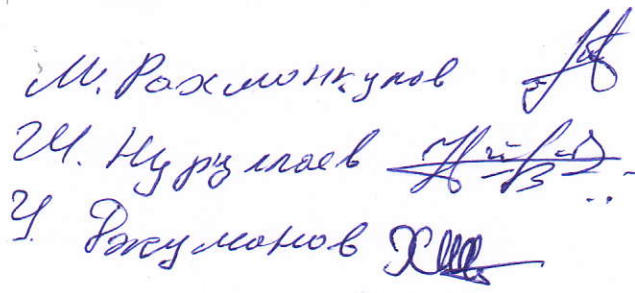 М. Рахманкулов
Ш. Нуруллаев
У. Джуманов